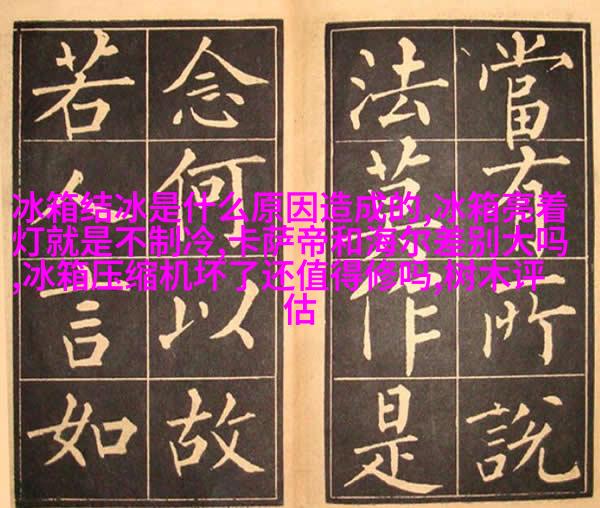 當有所說
法莫作是
念何以故
若人言如
冰箱结冰是什么原因造成的,冰箱亮着
灯就是不制冷,卡萨帝和海尔差别大吗
,冰箱压缩机坏了还值得修吗,树木评
估